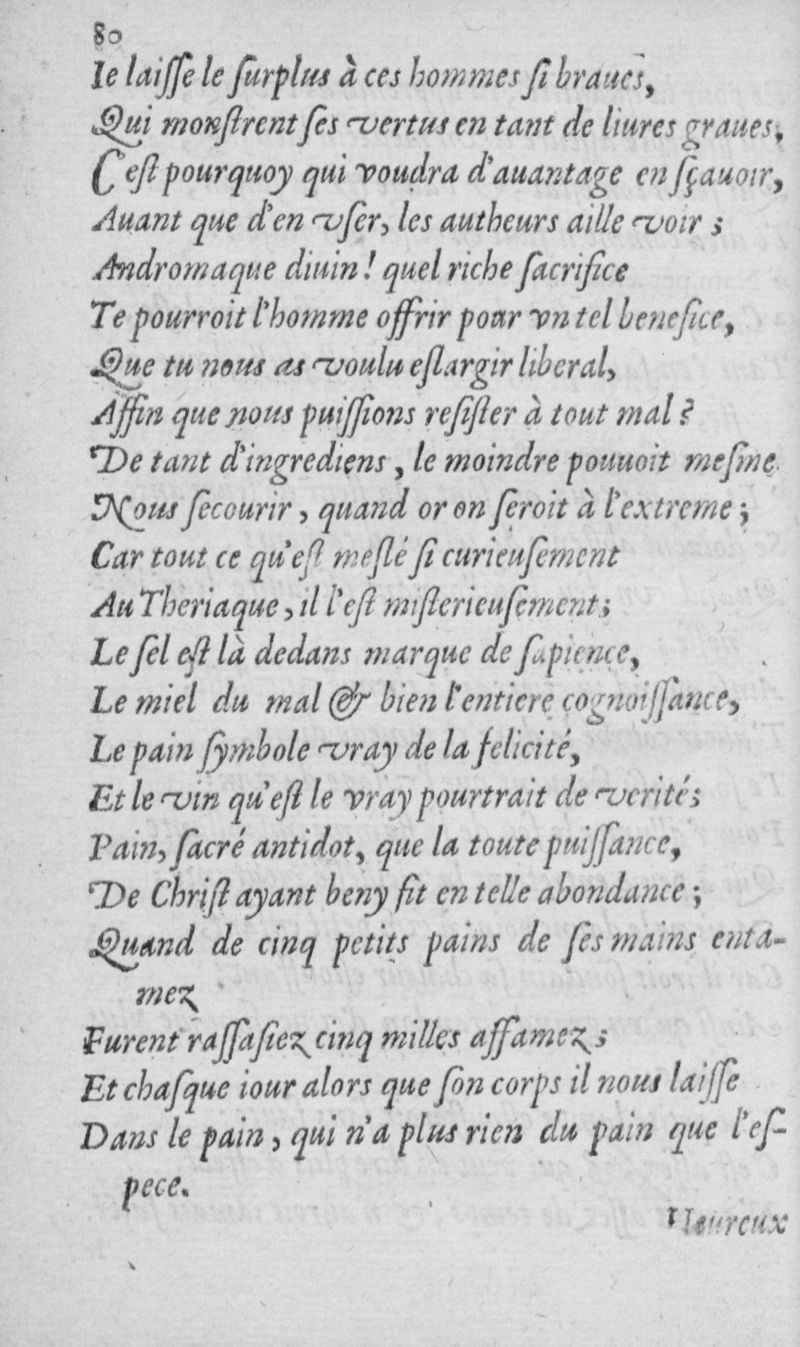 80
Ie laiſſe le ſurplus à ces hommes ſi braues,
Qui monſtrent ſes vertus en tant de liures graues,
C'eſt pourquoy qui voudra d'auantage en ſçauoir,
Auant que d'en vſer, les autheurs aille voir ;
Andromaque diuin ! quel riche ſacrifice
Te pourroit l'homme offrir pour vn tel benefice,
Que tu nous as voulu eſlargir liberal,
Affin que nous puiſſions reſiſter à tout mal ?
De tant d'ingrediens , le moindre pouuoit meſme
Nous ſecourir , quand or on ſeroit à l'extreme ;
Car tout ce qu'eſt meſlé ſi curieuſement
Au Theriaque , il l'eſt miſterieuſement ;
Le ſel eſt là dedans marque de ſapience,
Le miel du mal & bien l'entiere cognoiſſance,
Le pain ſymbole vray de la felicité,
Et le vin qu'eſt le vray pourtrait de verité ;
Pain, ſacré antidot, que la toute puiſſance,
De Chriſt ayant beny fit en telle abondance ;
Quand de cinq petits pains de ſes mains enta-
mez
Furent raſſaſiez cinq milles affamez ;
Et chaſque iour alors que ſon corps il nous laiſſe
Dans le pain , qui n'a plus rien du pain que l'eſ-
pece.
Heureux